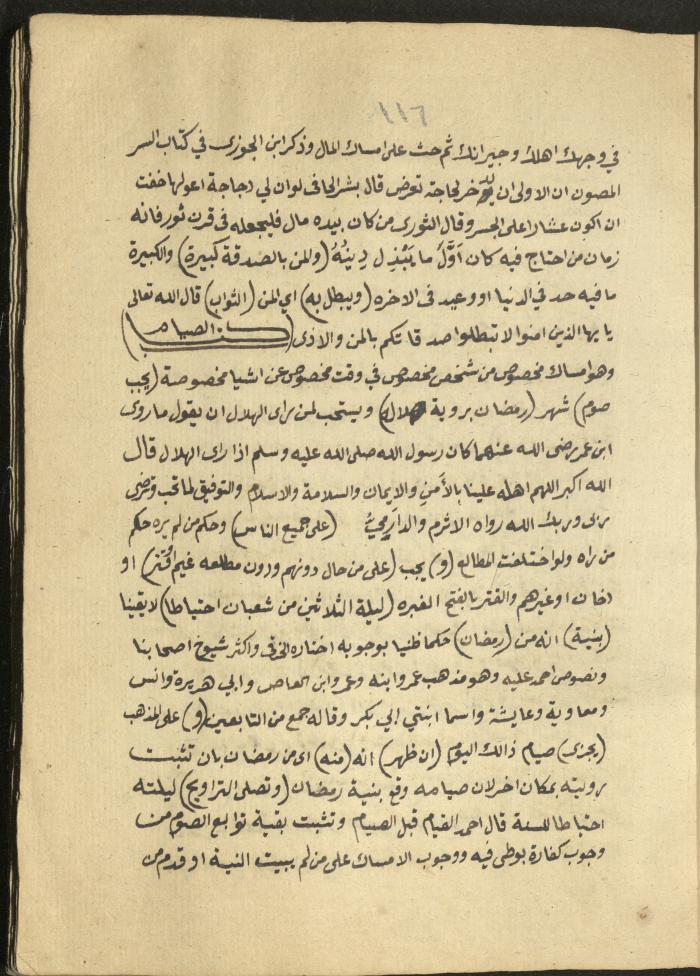 ١١٦
في وجهك اهلك وجيرانك ثم حث على امساك المال وذكر ابن الجوزى في كتاب السر
المصون ان الاولى ان يدخر لحاجة تعرض قال بشر الحافى لو ان لي دجاجة اعولها خفت
ان اكون عشارا على الجسر وقال الثورى من كان بيده مال فليجعله فى قرن ثور فانه
زمان من احتاج فيه كان اَوَّلَ ما يَبْذِل دِينَهُ (والمن بالصدقة كبيرة) والكبيرة
ما فيه حد في الدنيا او وعيد فى الاخره (ويبطل به) اي المن (الثواب) قال الله تعالى
يايها الذين امنوا لا تبطلوا صدقاتكم بالمن والاذى (كتاب الصيام)
وهو امساك مخصوص من شخص مخصوص في وقت مخصوص عن اشيا مخصوصة (يجب
صوم) شهر (رمضان بروية هلاله) ويستحب لمن راى الهلال ان يقول ما روى
ابن عمر رضى الله عنهما كان رسول الله صلى الله عليه وسلم اذا راى الهلال قال
الله اكبر اللهم اهله علينا بالأَمنِ والايمان والسلامة والاسلام والتوفيق لما تحب وترضى
ربى وربك الله رواه الاثرم والدَارِمِيُّ (على جميع الناس) وحكم من لم يره حكم
من راه ولو اختلفت المطالع (و) يجب (على من حال دونهم ودون مطلعه غيم او قتر) او
دخان او غيرهم والقتر بالفتح الغبره (ليلة الثلاثين من شعبان احتياطا) لا يقينا
(بنية) انه من (رمضان) حكما ظنيا بوجوبه اختاره الخرقى واكثر شيوخ اصحابنا
ونصوص احمد عليه وهو مذهب عمر وابنه وعمرو ابن العاص وابي هريرة وانس
ومعاوية وعايشة واسما ابنتي ابي بكر وقاله جمع من التابعين (و) على المذهب
(يجزى) صيام ذالك اليوم (ان ظهر) انه (منه) اى من رمضان بان تثبت
رويته بمكان اخر لان صيامه وقع بنية رمضان (وتصلى التراويح) ليلته
احتياطا للسنة قال احمد القيام قبل الصيام وتثبت بقية توابع الصوم من
وجوب كفارة بوطى فيه ووجوب الامساك على من لم يبيت النية او قدم من